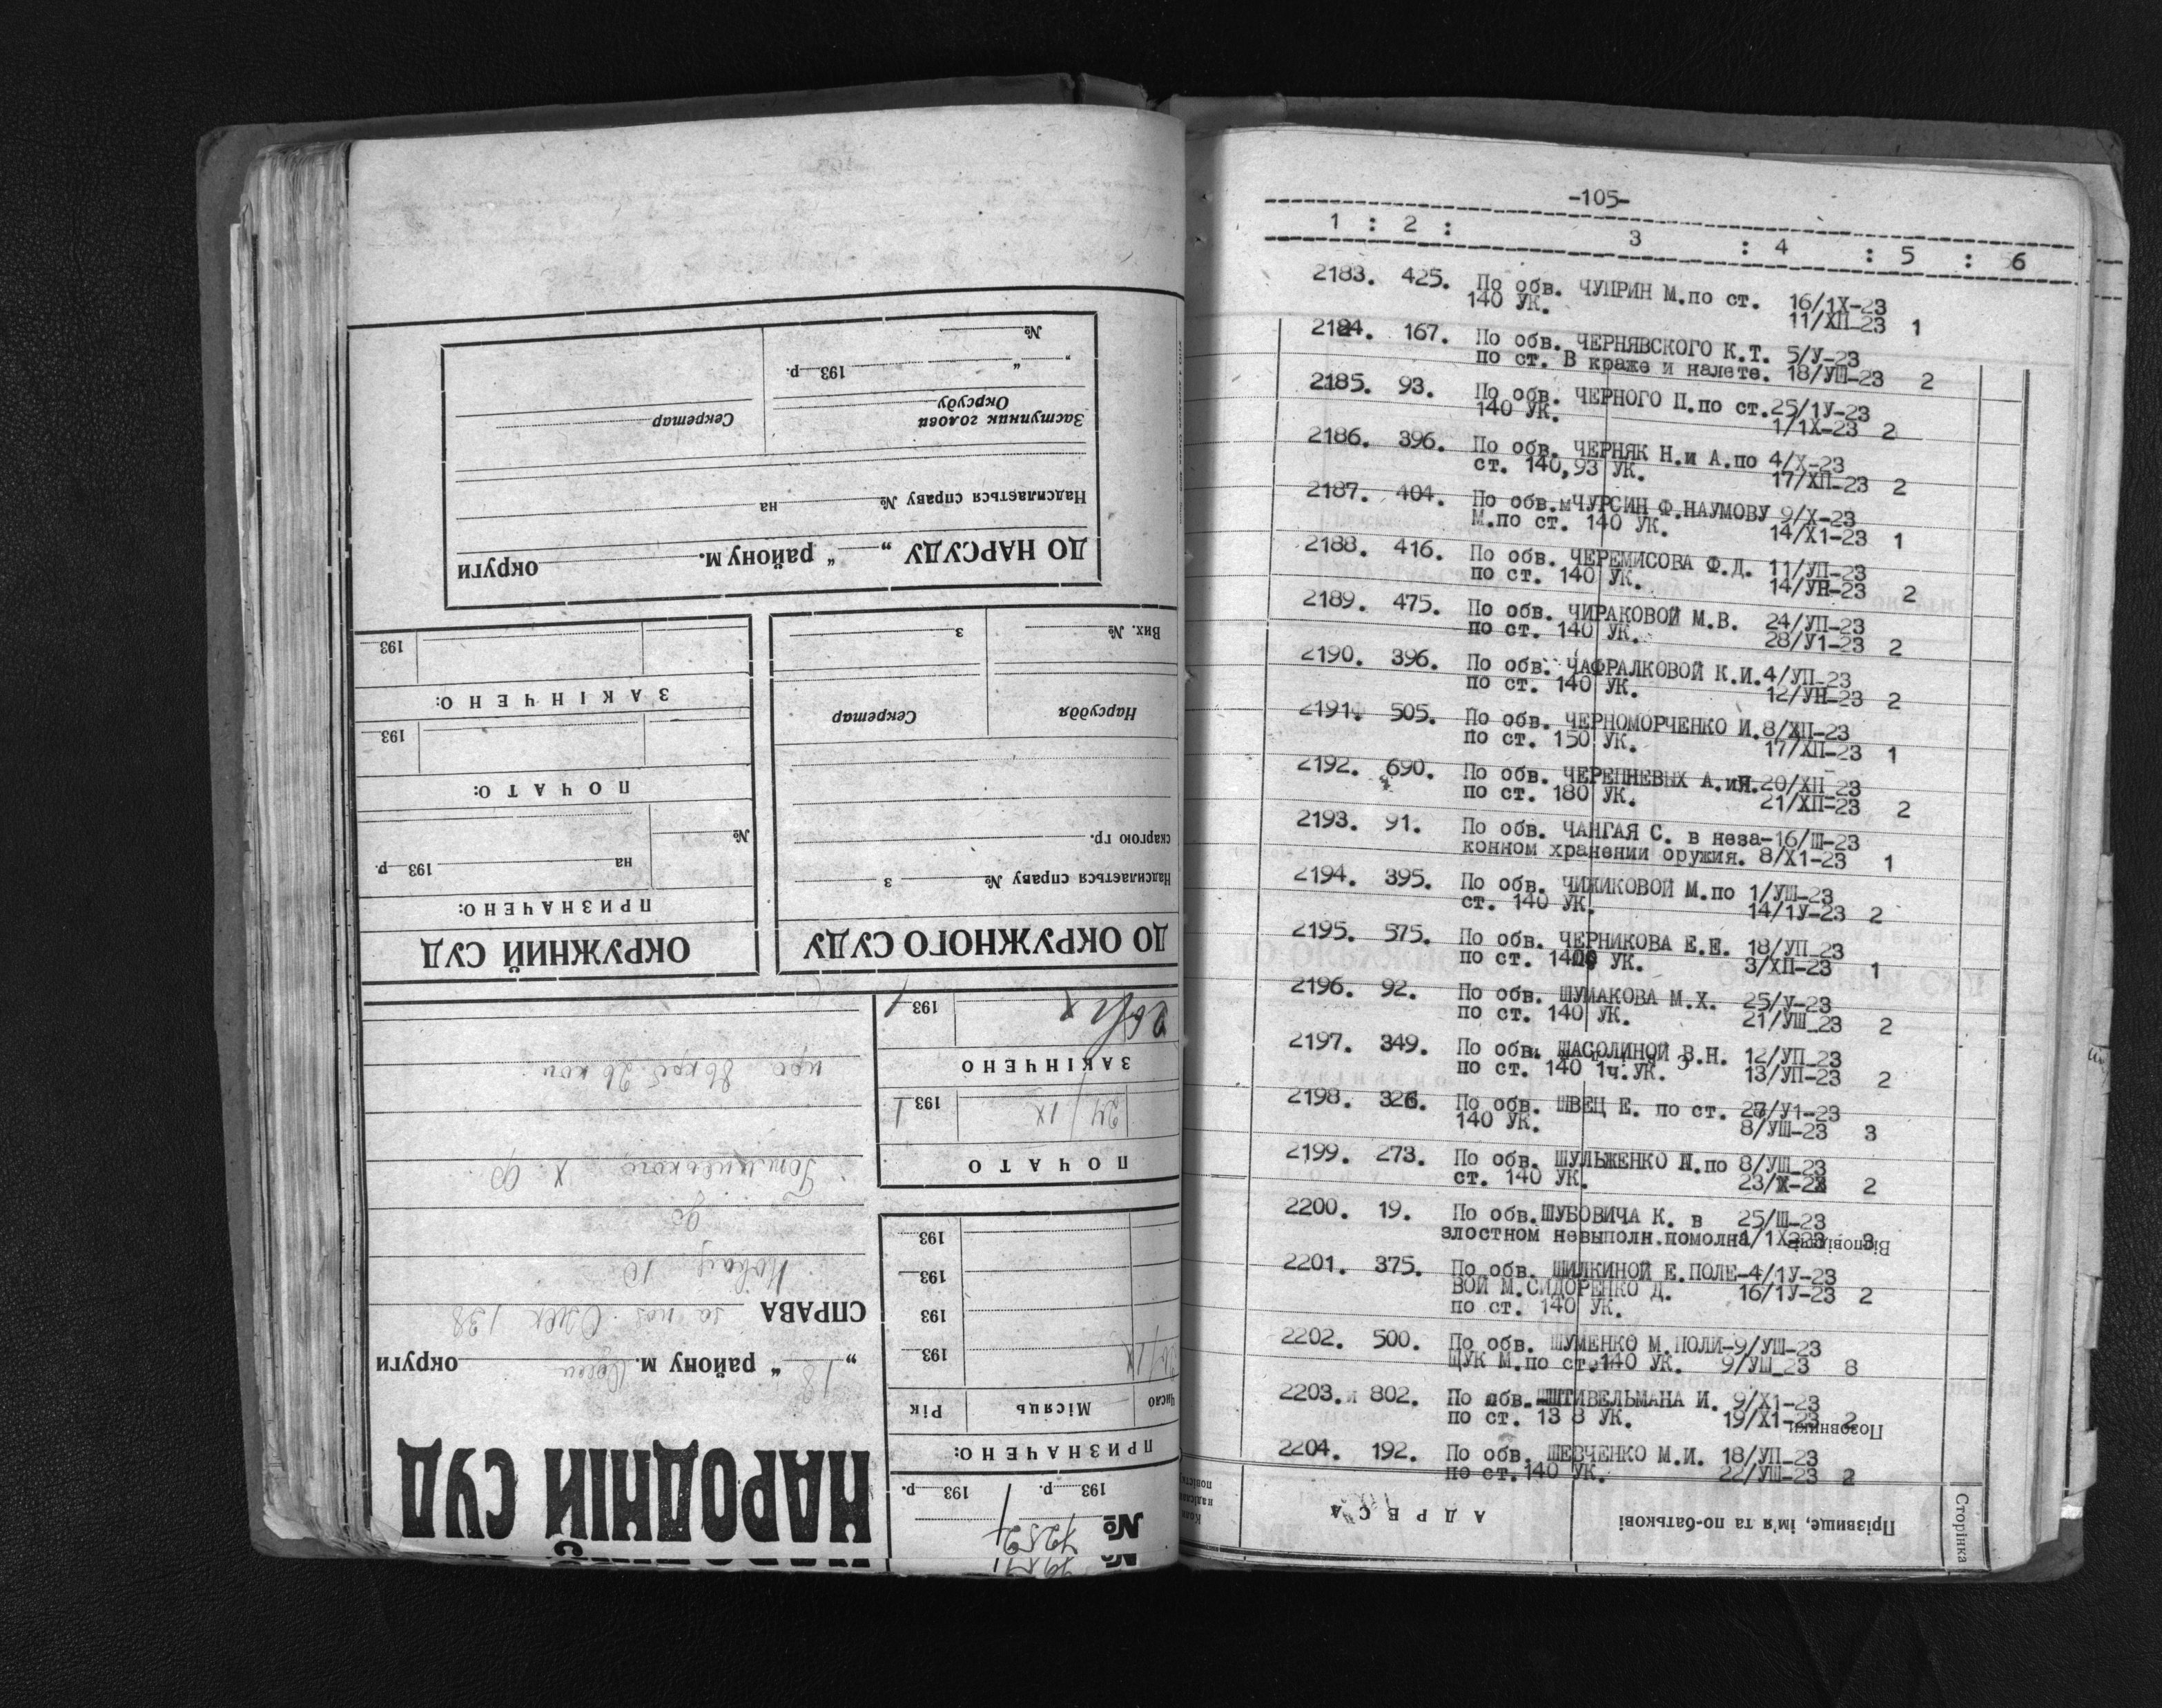 НАРОДНІЙ СУД
„18“ району м. округи
СПРАВА за поз. 138
№ 7252
193 р. 193 р.
ПРИЗНАЧЕНО:
Число Місяць Рік
193
193
193
193
ПОЧАТО
24 IX 1931
ЗАКІНЧЕНО
26/IX 1931
ОКРУЖНИЙ СУД
ПРИЗНАЧЕНО:
на 193 р.
№
ПОЧАТО:
193
ЗАКІНЧЕНО:
193
ДО ОКРУЖНОГО СУДУ
Надсилається справу № з
скаргою гр.
Нарсуддя Секретар
Вих. № з
ДО НАРСУДУ „ “ району м. округи
Надсилається справу № на
Заступник голови
Окрсуду
Секретар
„ “ 193 р.
№
-105-
1 : 2 : 3 : 4 : 5 : 6
2183. 425. По обв. ЧУПРИН М.по ст. 16/1Х-23
140 УК. 11/ХП-23 1
2184. 167. По обв. ЧЕРНЯВСКОГО К.Т. 5/У-23
по ст. В краже и налете. 18/УШ-23 2
2185. 93. По обв. ЧЕРНОГО П.по ст.25/1У-23
140 УК. 1/1Х-23 2
2186. 396. По обв. ЧЕРНЯК Н.и А.по 4/Х-23
ст. 140,93 УК. 17/ХП-23 2
2187. 404. По обв.мЧУРСИН Ф.НАУМОВУ 9/Х-23
М.по ст. 140 УК. 14/Х1-23 1
2188. 416. По обв. ЧЕРЕМИСОВА Ф.Д. 11/УП-23
по ст. 140 УК. 14/УН-23 2
2189. 475. По обв. ЧИРАКОВОЙ М.В. 24/УП-23
по ст. 140 УК. 28/У1-23 2
2190. 396. По обв. ЧАФРАЛКОВОЙ К.И.4/УП-23
по ст. 140 УК. 12/УН-23 2
2191. 505. По обв. ЧЕРНОМОРЧЕНКО И.8/ХП-23
по ст. 150 УК. 17/ХП-23 1
2192. 690. По обв. ЧЕРЕПНЕВЫХ А.иЯ.20/ХП-23
по ст. 180 УК. 21/ХП-23 2
2193. 91. По обв. ЧАНГАЯ С. в неза-16/Ш-23
конном хранении оружия. 8/Х1-23 1
2194. 395. По обв. ЧИЖИКОВОЙ М.по 1/УШ-23
ст. 140 УК. 14/1У-23 2
2195. 575. По обв. ЧЕРНИКОВА Е.Е. 18/УП-23
по ст. 140 УК. 3/ХП-23 1
2196. 92. По обв. ШУМАКОВА М.Х. 25/У-23
по ст. 140 УК. 21/УШ-23 2
2197. 349. По обв. ШАСОЛИНОЙ В.Н. 12/УП-23
по ст. 140 1ч.УК. 13/УП-23 2
2198. 326. По обв. ШВЕЦ Е. по ст. 27/У1-23
140 УК. 8/УШ-23 3
2199. 273. По обв. ШУЛЬЖЕНКО Н.по 8/УШ-23
ст. 140 УК. 23/Х-23 2
2200. 19. По обв.ШУБОВИЧА К. в 25/Ш-23
злостном невыполн.помолна
Відповідачі
2201. 375. По обв. ШИЛКИНОЙ Е.ПОЛЕ-4/1У-23
ВОЙ М.СИДОРЕНКО Д. 16/1У-23 2
по ст. 140 УК.
2202. 500. По обв. ШУМЕНКО М.ПОЛИ-9/УШ-23
ЩУК М.по ст.140 УК. 9/УШ-23 8
2203. 802. По обв. ШТИВЕЛЬМАНА И. 9/Х1-23
по ст. 13 8 УК. 19/Х1-23 2
Позовники
2204. 192. По обв. ШЕВЧЕНКО М.И. 18/УП-23
по ст.140 УК. 22/УШ-23 2
Сторінка Прізвище, ім'я та по-батькові АДРЕСА